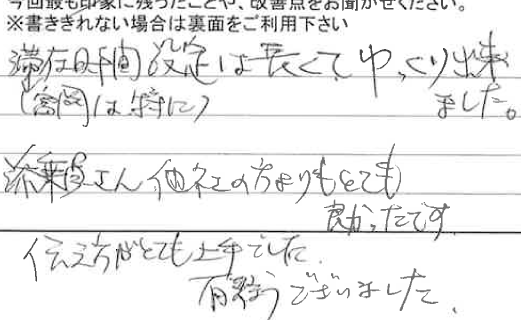 今回最も印象に残ったことや、改善点をお聞かせください。
※書ききれない場合は裏面をご利用下さい
滞在時間設定は長くて ゆっくり出来
(富岡は特に) ました。
添乗員さん 他社の方よりもとても
良かったです
伝え方がとても上手でした.
有難うございました.